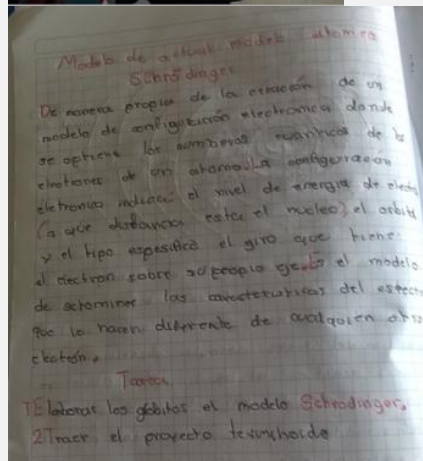 Modelo de actual modelo atomico
Schrödinger
De manera propia de la ecuación de un
modelo de configuración electronica donde
se optiene los numeros cuanticos de lo
electrones de un atomo. La configuración
eletronica indica: el nivel de energia de elect
(a que distancia esta el nucleo) el orbita
y el tipo espesifico el giro que tiene
el electron sobre su propio eje. Es el modelo
de acrominer las caracteristicas del espect
que lo hacen diferente de cualquier otro
electron.
Tarea
1 Elaborar los orbitos el modelo Schrodinger.
2 Traer el proyecto